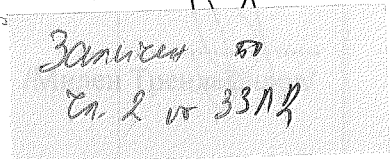 Заличен по
чл. 2 от ЗЗЛД